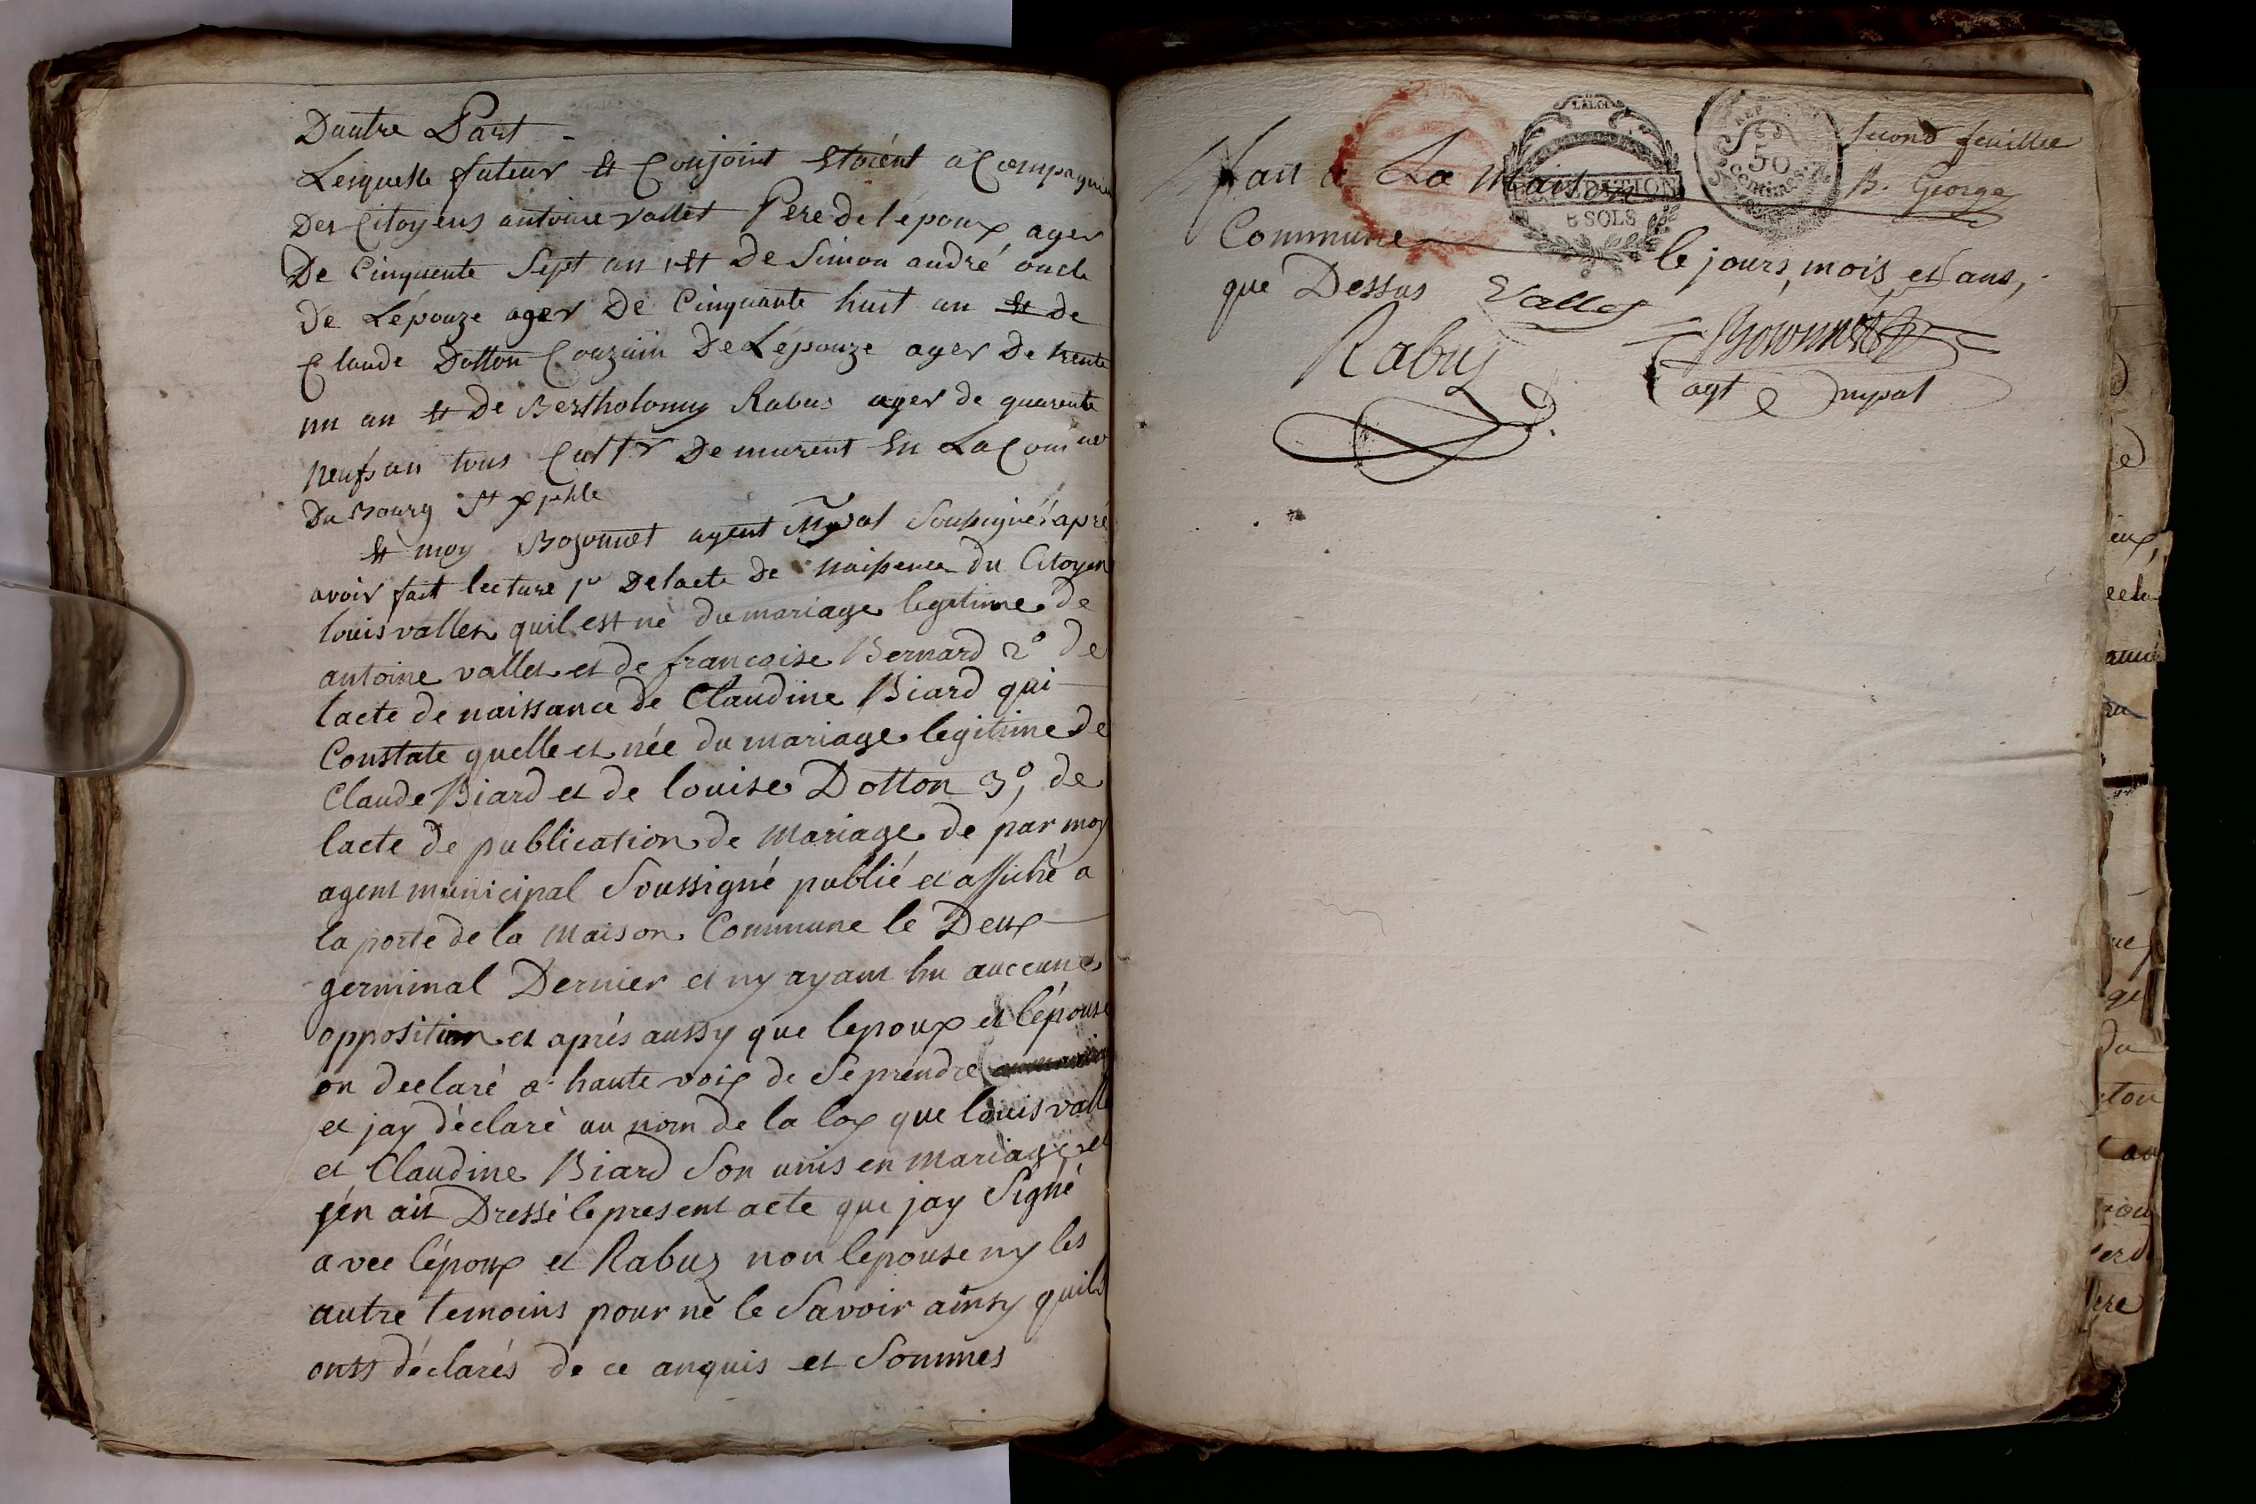 Dautre Part -
Lesquelle futeur et Conjoint Etoient aCompagnier
Des Citoyens antoine vallet Pere de lépoux ager
De Cinquente Sept an et De Simon andré oncle
de Lépouze ager De Cinquante huit an et de
Claude Dotton Couzain De Lépouze ager De trente
un an et De Bertholomy Rabus ager de quarente
neuf an tous Cult.r Demurent En La Comune
Du Bourg St
Et moy Bozonnet agent Mpal Soussigné apré
avoir fait lecture 1° De lacte de naissence du Citoyen
louis vallet quil est né du mariage legitime de
antoine vallet et de francoise Bernard 2° de
lacte de naissance de Claudine Biard qui
Constate quelle et née du mariage legitime de
Claude Biard et de louise Dotton 3°, de
lacte de publication de Mariage de par moy
agent municipal Soussigné publié et affiché a
la porte de la Maison Commune le Deux
germinal Dernier et ny ayant hu auccune
opposition et aprés aussy que lepoux et lépouse
on declaré a haute voix de Se prendre
et jay déclaré au nom de la loy que louis valle
et Claudine Biard Son unis en Mariage et
jén ait Dressé le present acte que jay Signé
avec lépoux et Rabuz non lepouse ny les
autre temoins pour ne le Savoir ainsy quils
onts déclarés de ce anquis et Sommes
LA LOI
REP
50
centimes
EXPEDITION
8 SOLS
Second feuillee
B. George
fait a La Maison
Commune le jours, mois et ans,
que Dessus Vallet
Rabuz Bozonnet
agt mpal